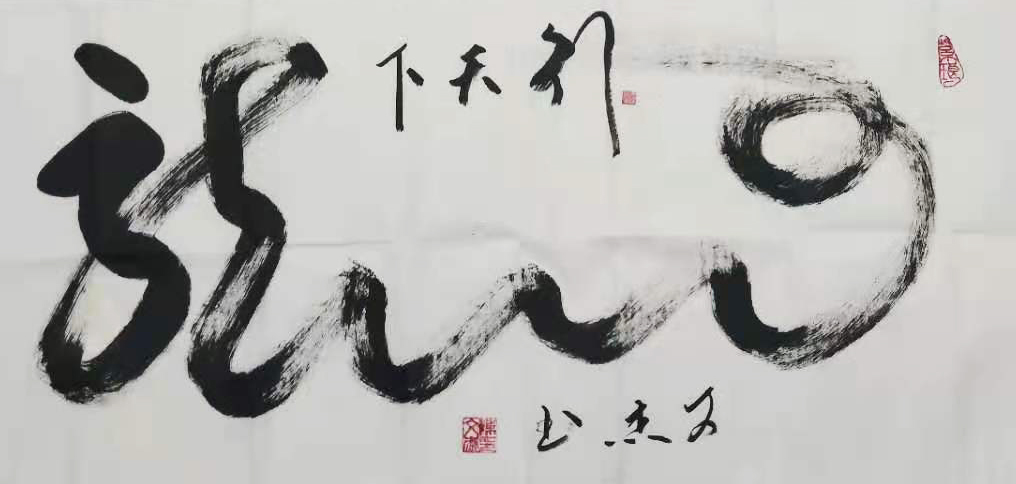 龍
行天下
文杰书